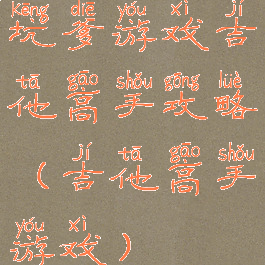 kēng diē yóu xì jí
坑爹游戏吉
tā gāo shǒu gōng lüè
他高手攻略
jí tā gāo shǒu
(吉他高手
yóu xì
游戏)